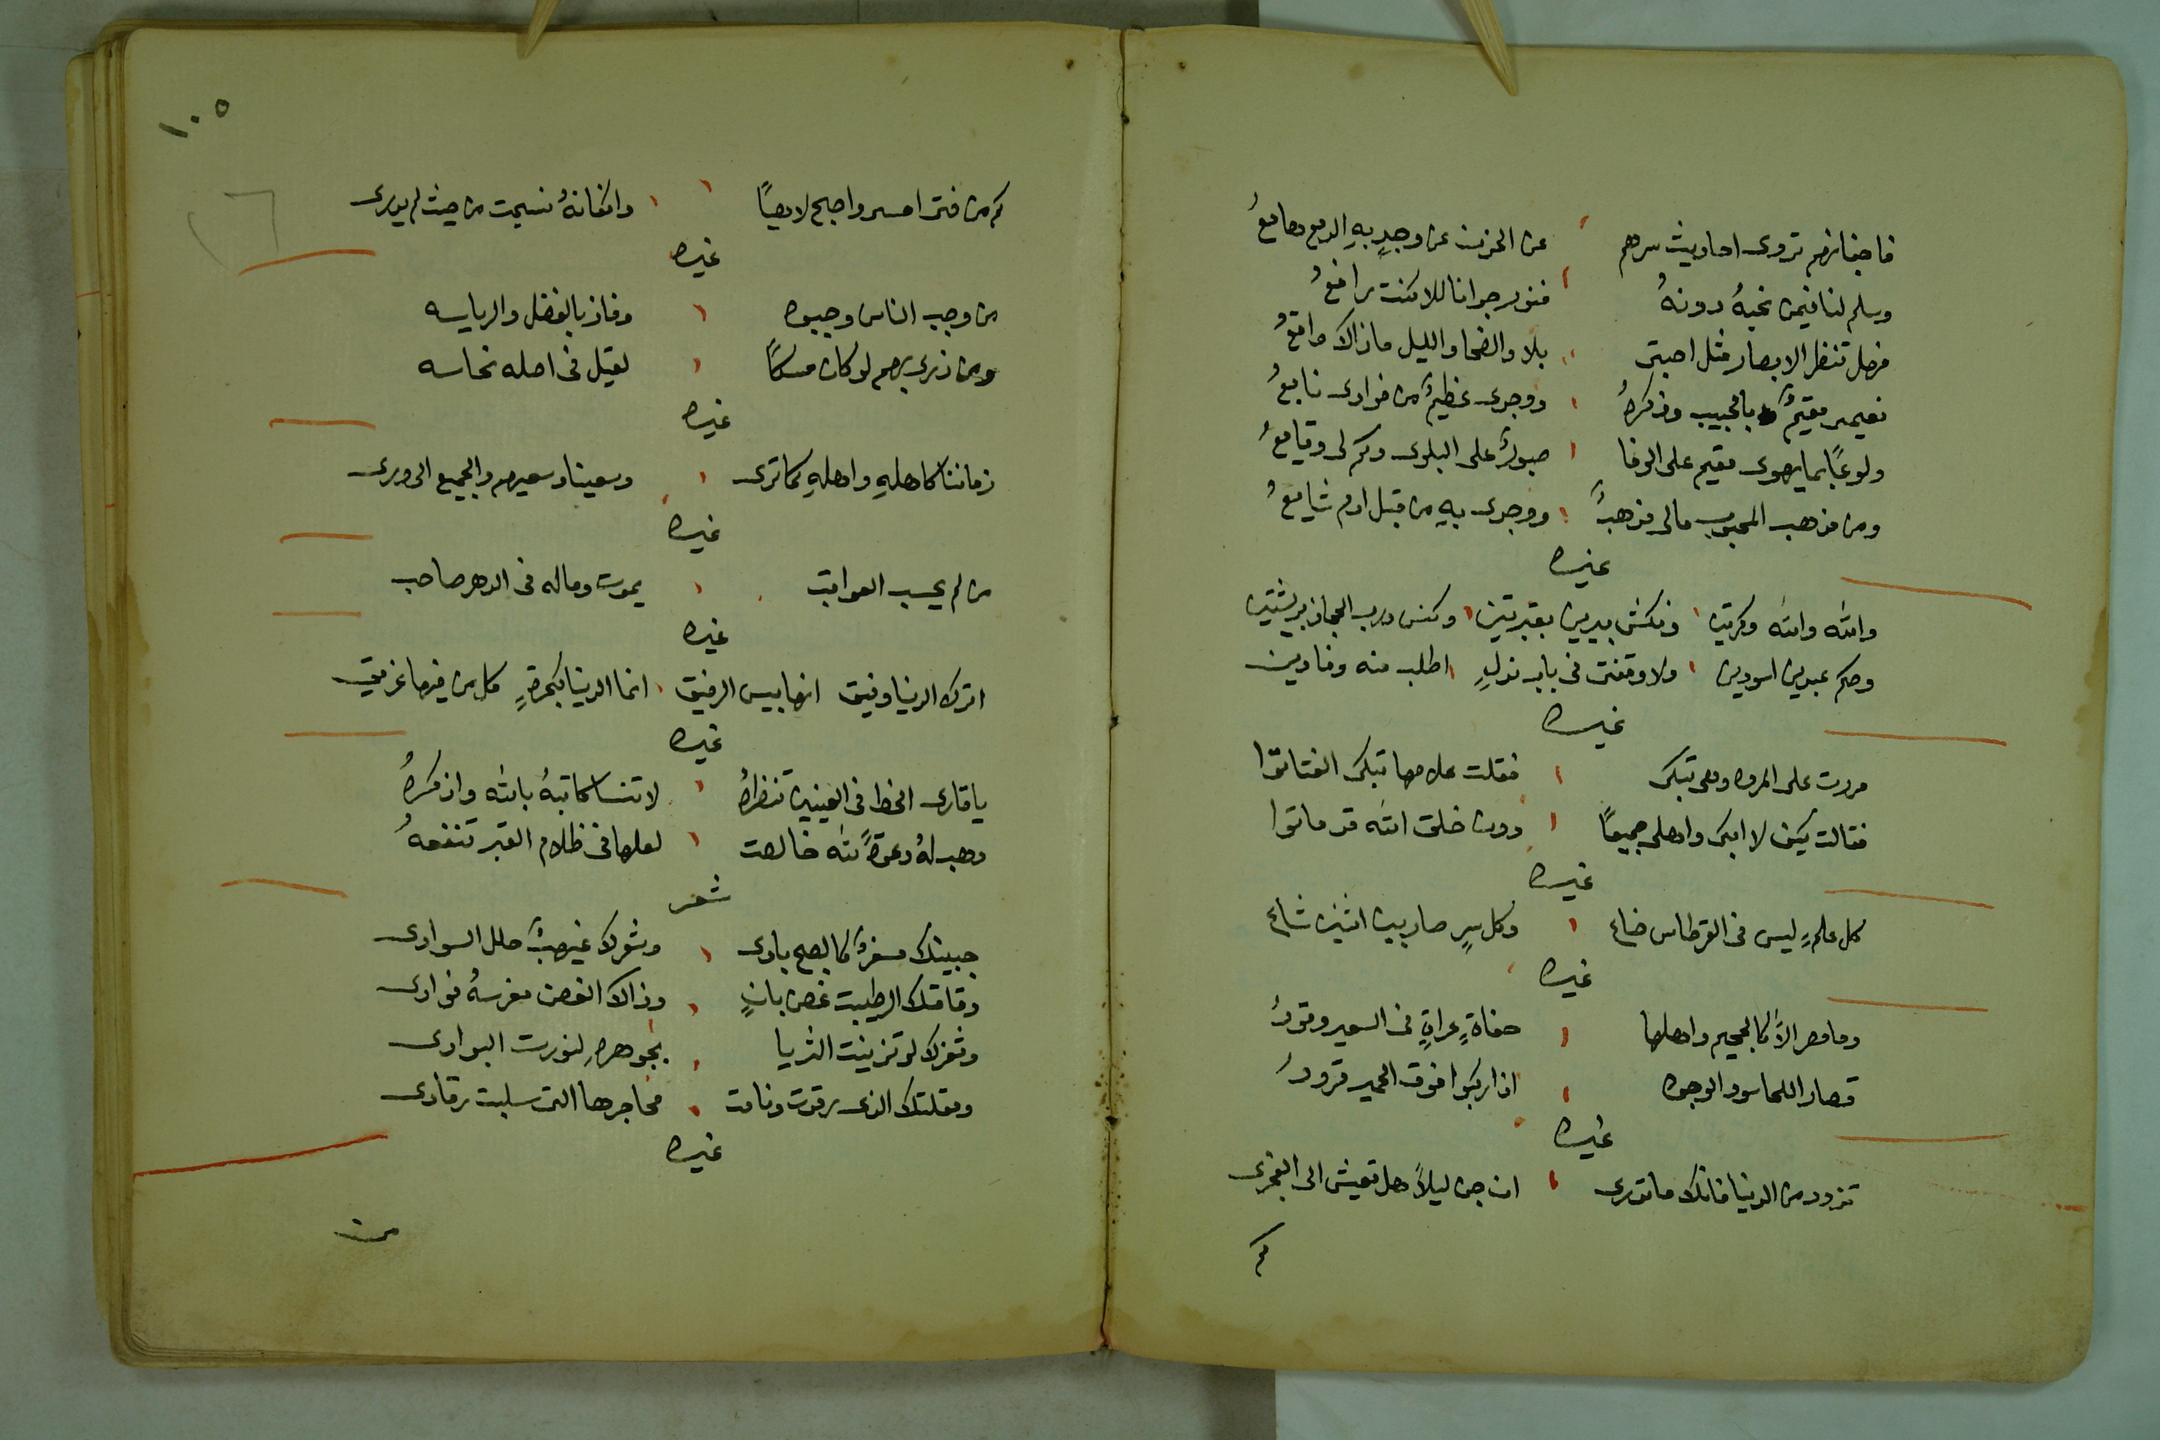 فاجفانهم تروى احاديث سرهم عن الحزن عن وجدٍ بهِ الدمع هامعُ
وسلم لنا فيمن نحبهُ دونهُ
فهل تنظر الابصار مثل احبتى بلا والضحا والليل ماذاك واقعُ
نعيمى مقيمٌ بالحبيب وذكرهُ ووجدى عظيمٌ من فوادى نابعُ
ولوعًا بما يهوى مقيم على الوفا صبورٌ على البلوى وكم لى وقايعُ
ومن مذهب المحبوب مالى مذهبٌ ووجدى بهِ من قبل ادم شايعُ
غيره
والله والله وكرتين
وحكم عبدين اسودين ولا وقفتى فى باب نذلٍ اطلب منه وفادين
غيره
مررت على المروه وهى تبكى فقلت علامها تبكى الفتاتوا
فقالت كيف لا ابكى واهلى جميعًا دون خلق الله قد ماتوا
غيره
كل علمٍ ليس فى القرطاس ضاع وكل سرٍ صار بين اثنين شاع
غيره
وما مصر الاّ كالجحيم واهلها حفاةٍ عراةٍ فى السعير وقودُ
قصار اللحا سود الوجوه اذا ركبوا فوق الحمير قرودُ
غيره
تزود من الدنيا فانك ما تدرى ان جن ليلاً هل تعيش الى الفجرى
كم
١٠٥
كم من فتى امسى واصبح لاهيًا واكفانهُ نسجت من حيث لم يدرى
غيره
من وجب الناس وجبوه وفاز بالفضل والرياسه
ومن زرى بهم لو كان مسكًا لقيل فى اصله نحاسه
غيره
زماننا كاهلهِ واهلهِ كما ترى وسعينا وسعيهم والجميع الى ورى
غيره
من لم يحسب العواقب يموت وماله فى الدهر صاحب
غيره
اترك الدنيا وفيق انها بيس الرفيق انما الدنيا كبحرةٍ كل من فيها غريق
غيره
يا قارى الخط فى العينين تنظرهُ لا تنسا كاتبهُ بالله واذكرهُ
وهب لهُ دعوةً لله خالصت لعلها فى ظلام القبر تنفعهُ
شعر
جبينك مسفرٌ كالصبح بادى وشعرك غيهبٌ حلل السوادى
وقامتك الرطيبت غصن بانٍ وذاك الغصن مغرسهُ فوادى
وثغرك لو تزينت الثريا بجوهرهِ لنورت البوادى
ومقلتك الذى رقدت ونامت محاجرها التى سلبت رقادى
غيره